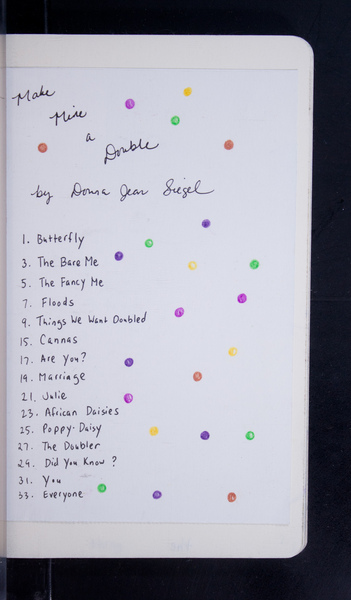 Make
Mine
a
Double
by Donna Jean Siegel
1. Butterfly
3. The Bare Me
5. The Fancy Me
7. Floods
9. Things We Want Doubled
15. Cannas
17. Are You?
19. Marriage
21. Julie
23. African Daisies
25. Poppy-Daisy
27. The Doubler
29. Did You Know?
31. You
33. Everyone